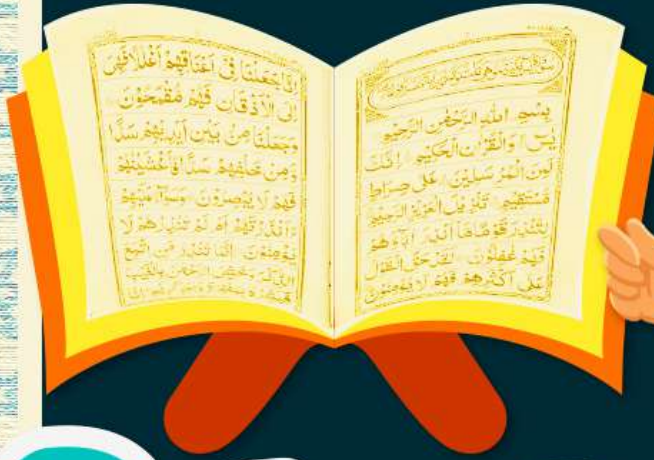 بِسْمِ اللّٰهِ الرَّحْمٰنِ الرَّحِيْمِ
يٰسٓ وَالْقُرْاٰنِ الْحَكِيْمِ اِنَّكَ
لَمِنَ الْمُرْسَلِيْنَ عَلٰى صِرَاطٍ
مُّسْتَقِيْمٍ تَنْزِيْلَ الْعَزِيْزِ الرَّحِيْمِ
لِتُنْذِرَ قَوْمًا مَّا اُنْذِرَ اٰبَآؤُهُمْ
فَهُمْ غٰفِلُوْنَ لَقَدْ حَقَّ الْقَوْلُ
عَلٰى اَكْثَرِهِمْ فَهُمْ لَا يُؤْمِنُوْنَ
اِنَّا جَعَلْنَا فِىْ اَعْنَاقِهِمْ اَغْلٰلًا فَهِىَ
اِلَى الْاَذْقَانِ فَهُمْ مُّقْمَحُوْنَ
وَجَعَلْنَا مِنْ بَيْنِ اَيْدِيْهِمْ سَدًّا
وَمِنْ خَلْفِهِمْ سَدًّا فَاَغْشَيْنٰهُمْ
فَهُمْ لَا يُبْصِرُوْنَ وَسَوَآءٌ عَلَيْهِمْ
ءَاَنْذَرْتَهُمْ اَمْ لَمْ تُنْذِرْهُمْ لَا
يُؤْمِنُوْنَ اِنَّمَا تُنْذِرُ مَنِ اتَّبَعَ
الذِّكْرَ وَخَشِىَ الرَّحْمٰنَ بِالْغَيْبِ